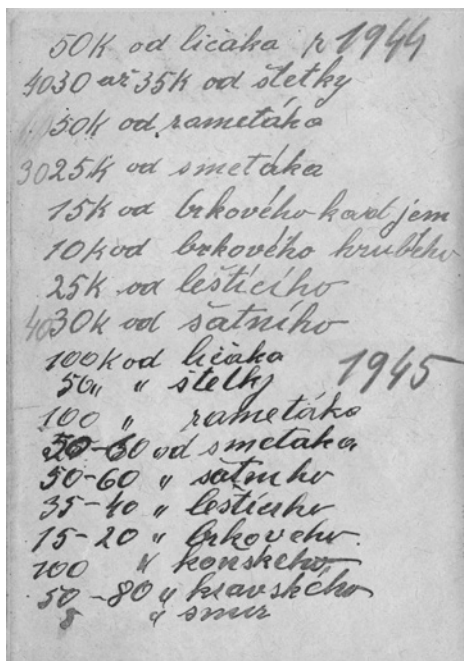 50K od ličáka r 1944
40 30 až 35K od štetky
50K od rametáka
30 25K od smetáka
15K od brkového kart jem
10K od brkového hrubého
25K od leštícího
40 30K od šatního
100K od ličáka 1945
50 „ „ štetky
100 „ rametáko
50-60 od smetáka
50-60 „ šatního
35-40 „ leštícího
15-20 „ brkového
100 „ konského
50-80 „ kravského
8 „ šnur